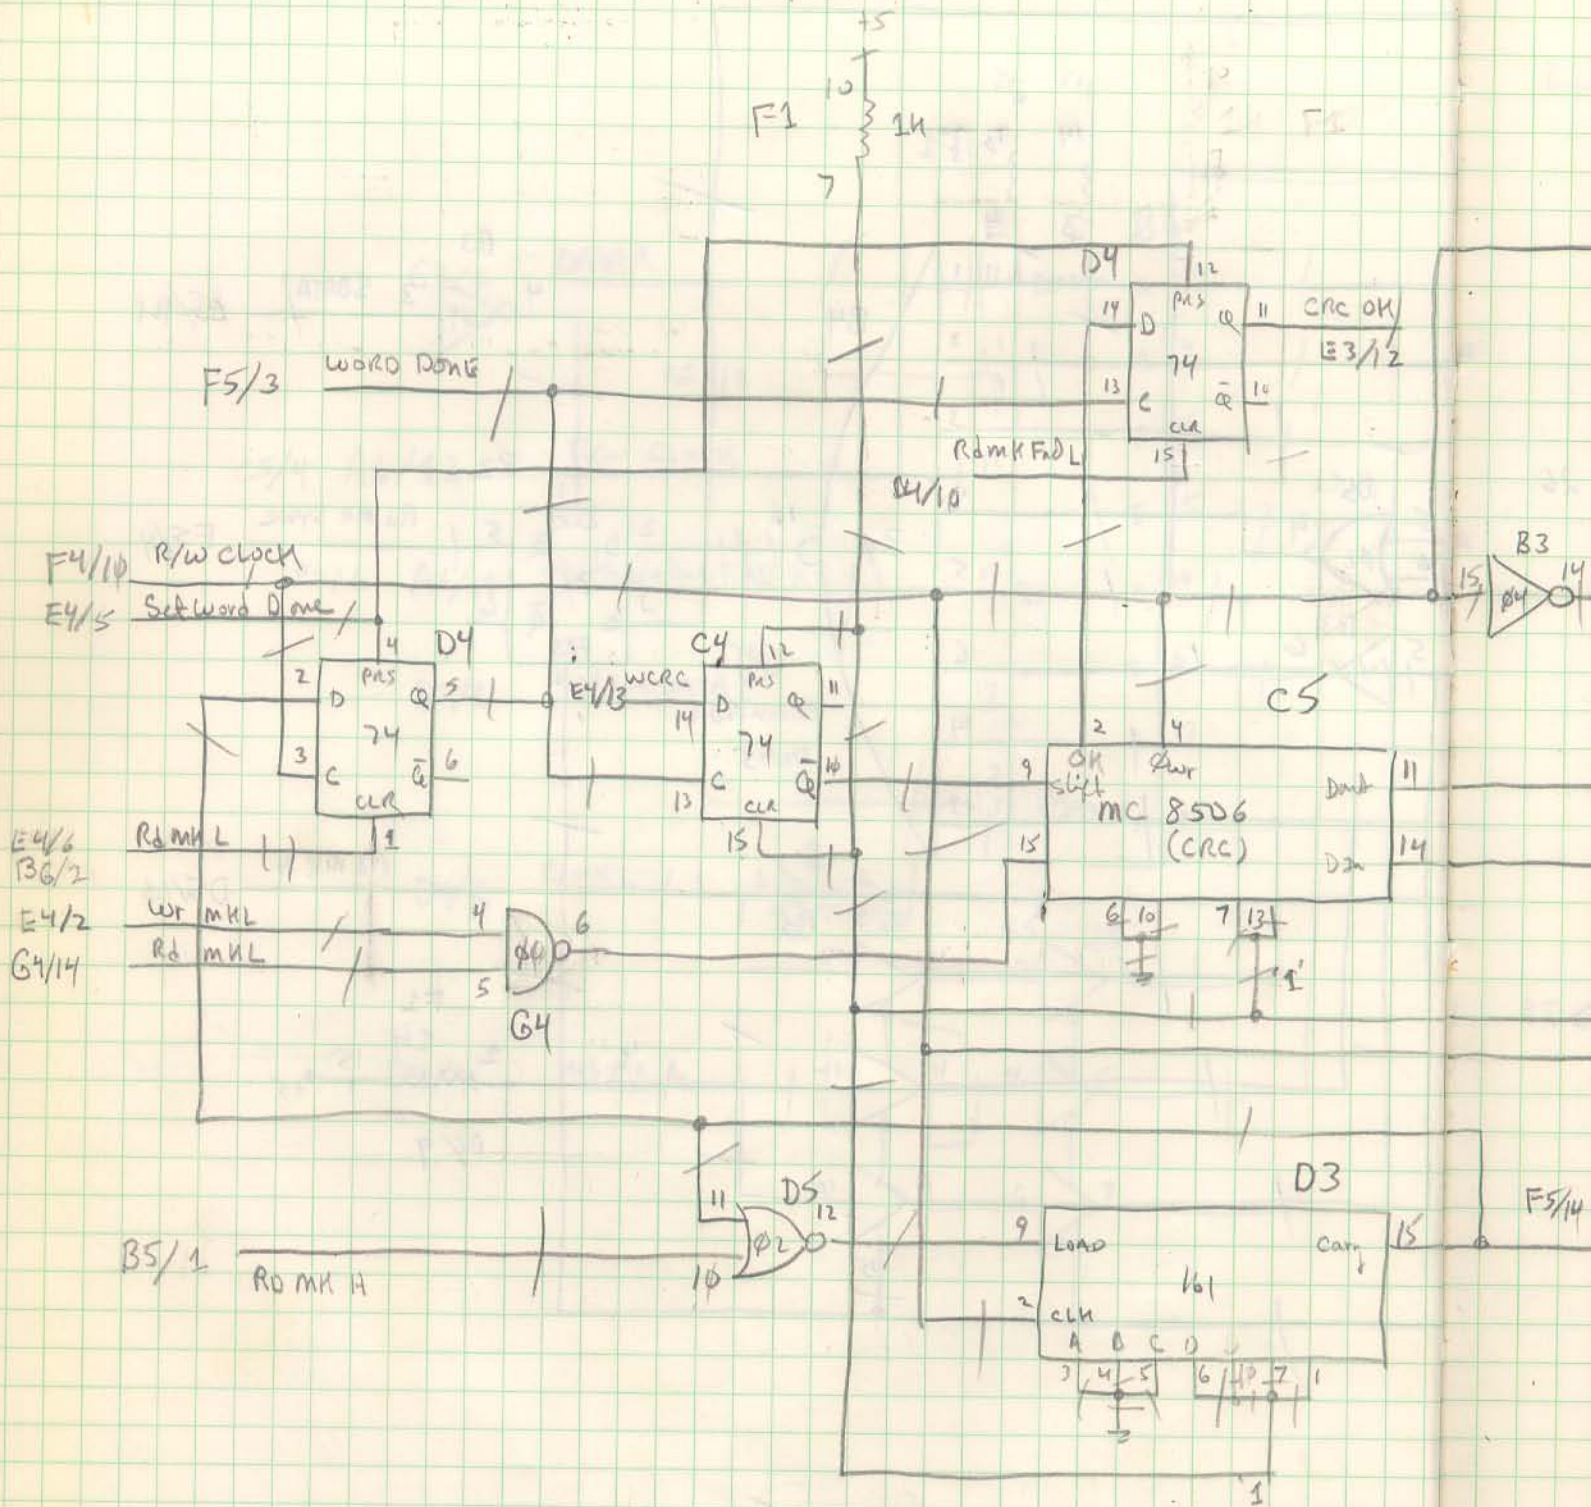 +5
10
F1
1K
7
D4
12
14 D PRS Q 11 CRC OK
E3/12
74
13 C Q̄ 10
CLR
15
F5/3 WORD DONE
RdmK Fnd L
D4/10
F4/10 R/W CLOCK
E4/5 Set Word Done
B3
15 04 14
4 D4
2 D PRS Q 5
74
3 C Q̄ 6
CLR
1
C4 12
E4/13 WCRC
14 D PRS Q 11
74
13 C Q̄ 10
CLR
15
C5
2 4
OK
9 Shift Dout 11
MC 8506
(CRC)
15 Din 14
6 10 7 13
1
E4/6 Rd MK L
B6/2
E4/2 Wr mK L
G4/14 Rd mK L
4
5
00 6
G4
D5
11
02 12
10
B5/1
RD MK H
D3
9 LOAD Carry 15
161
2 CLK
A B C D
3 4 5 6 10 7 1
F5/14
1